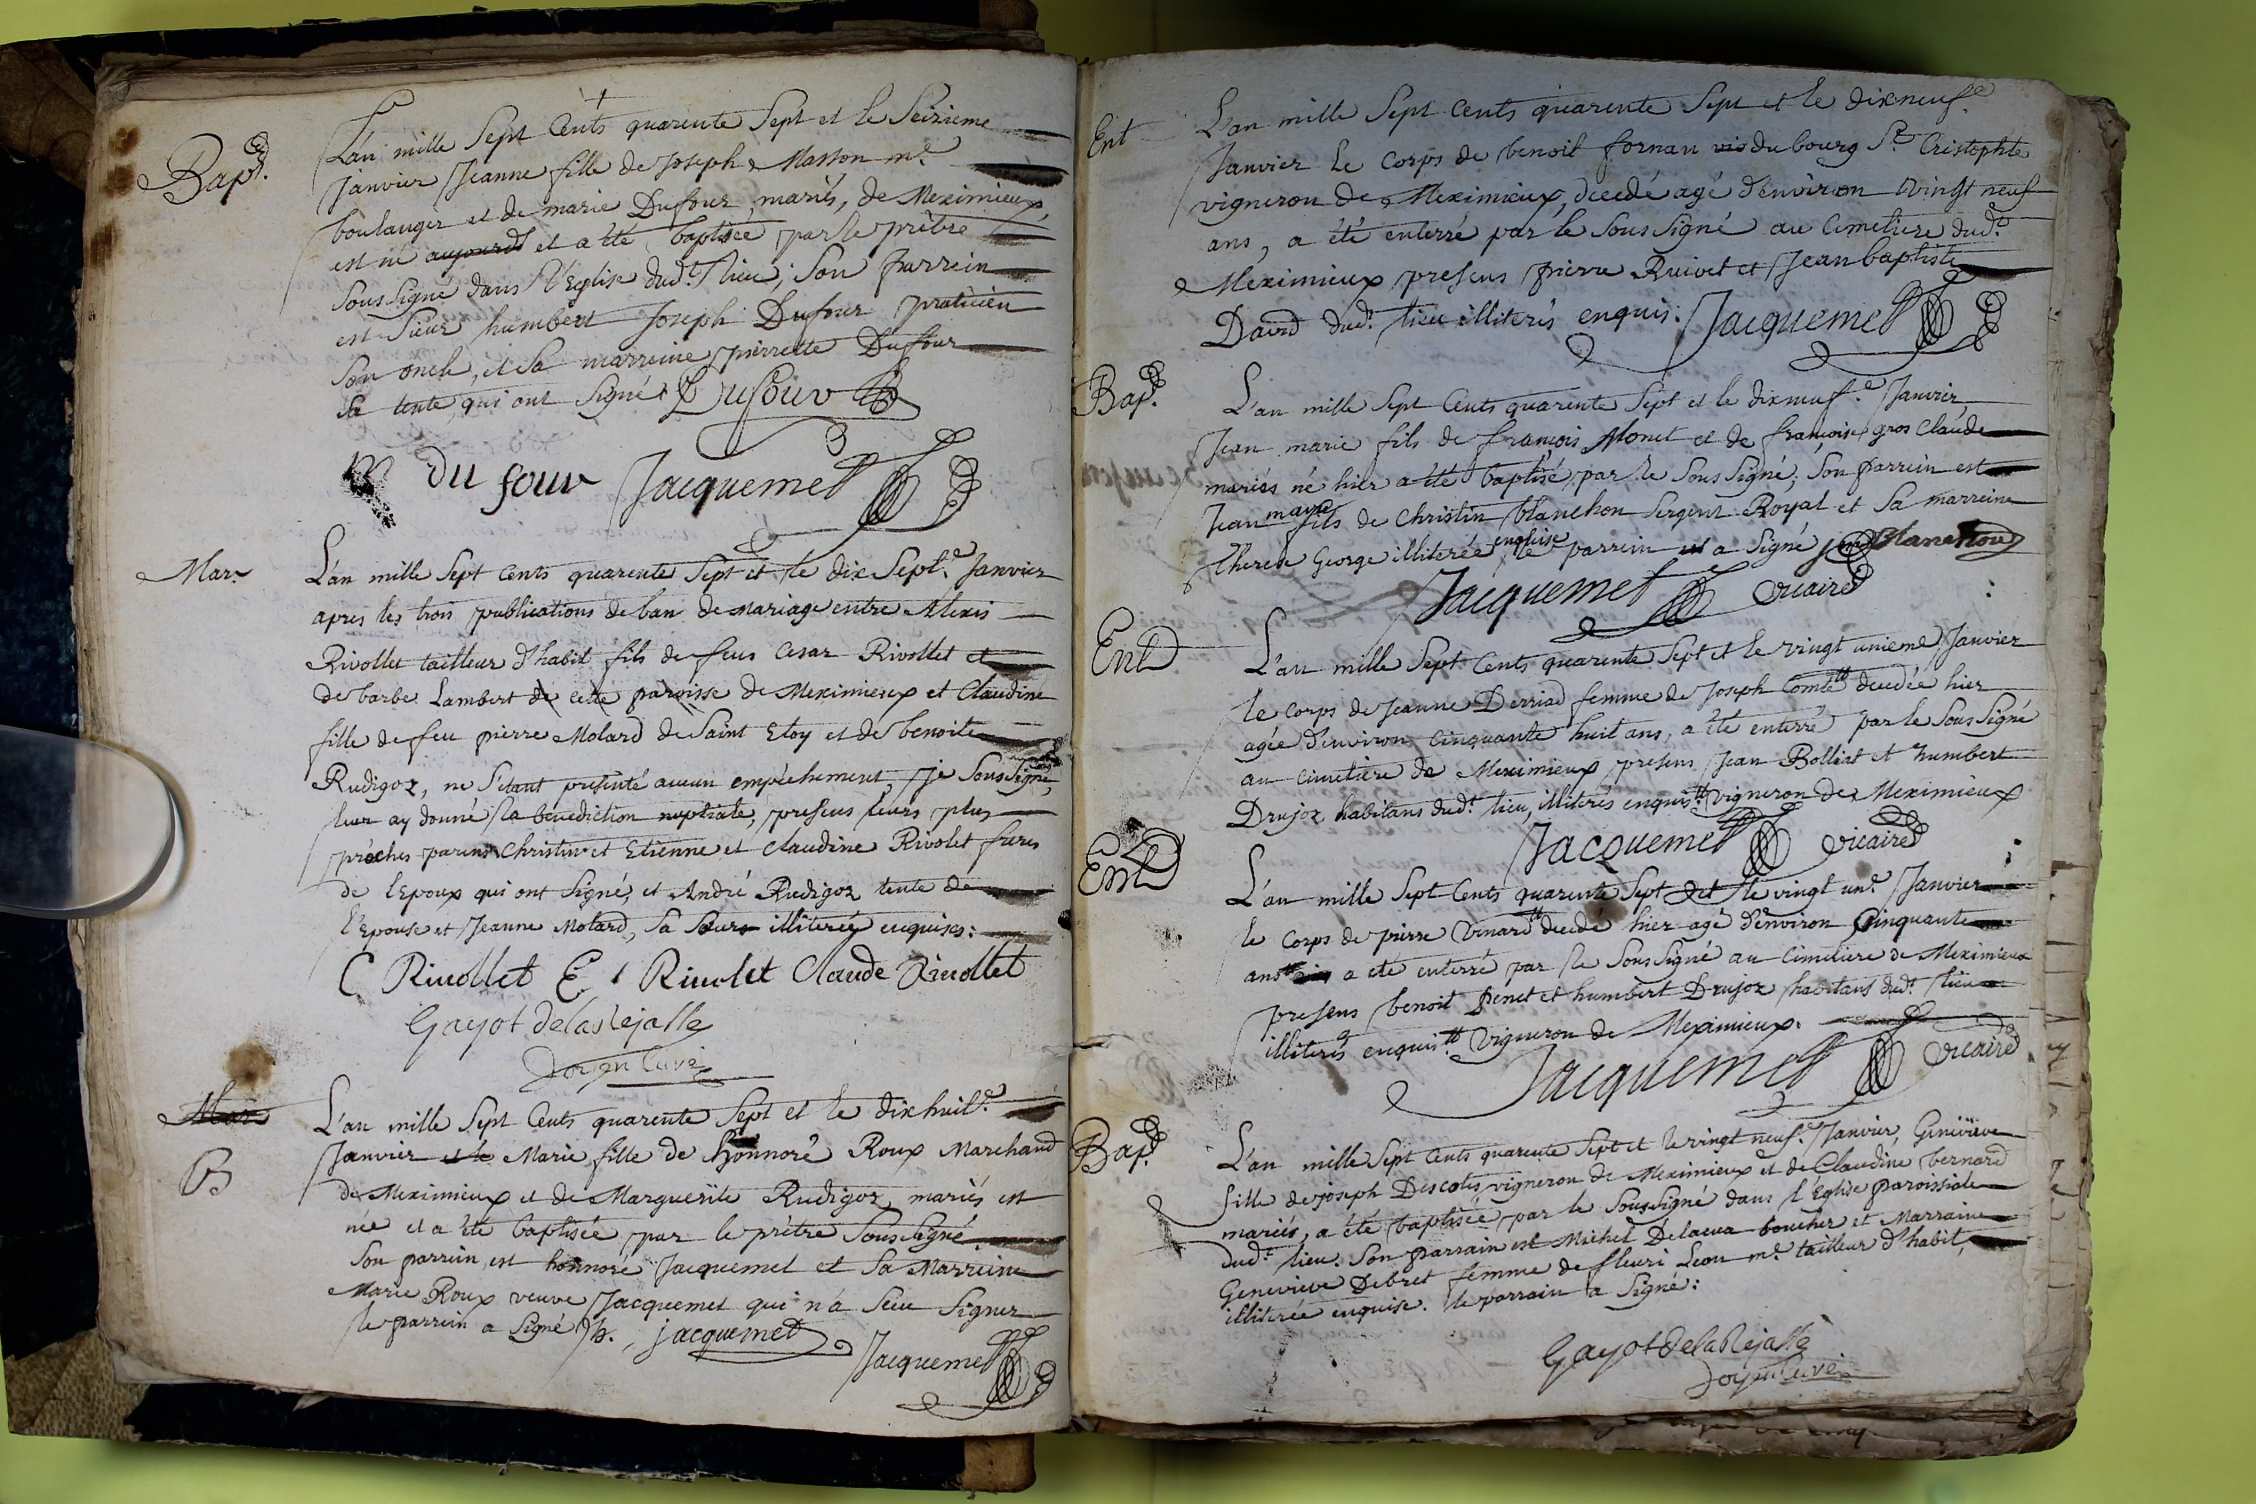 Bapt.
L'an mille Sept Cents quarente Sept et le Seizieme
Janvier Jeanne fille de Joseph Masson me.
boulanger et de marie Dufour mariés, de Meximieux,
est né aujourd et a été baptisée par le prêtre
Sous Signé dans l'Eglise dudt. lieu; Son parrein
est Sieur humbert Joseph Dufour praticien
Son oncle, et Sa marreine pierrette Dufour
Sa tente, qui ont Signé Dufour
Du four Jacquemet
Mar.
L'an mille Sept Cents quarente Sept et le dix Septe. Janvier
apres les trois publications de ban de mariage entre Alexis
Rivollet tailleur d'habit fils de feus Cesar Rivollet et
de barbe Lambert de cette paroisse de Meximieux et Claudine
fille de feu pierre Molard de Saint Eloy et de benoite
Rudigoz, ne S'etant presenté aucun empêchement, je Sous Signé,
leur ay donné la benediction nuptiale, presens leurs plus
proches parens Christin et Etienne et Claudine Rivolet freres
de l'Epoux qui ont Signé, et André Rudigoz tente de
l'Epouse et Jeanne Molard, Sa Soeur illiterés enquises:
C Rivollet E. Rivolet Claude Rivollet
Gayot delaRejasse
Doyen Curé
Mar.
B
L'an mille Sept Cents quarente Sept et le dix huite.
Janvier et le Marie fille de Honnoré Roux Marchand
de Meximieux et de Marguerite Rudigoz mariés est
née et a été baptisée par le prêtre Sous Signé
Son parrein est honnoré Jacquemet et Sa Marreine
Marie Roux veuve Jacquemet qui n'a Sceu Signer
le parrein a Signé h. jacquemet
Jacquemet
Ent
L'an mille Sept Cents quarente Sept et le dixneufe.
Janvier le Corps de benoit fornan vis du bourg St. Cristophle
vigneron de Meximieux, decedé agé d'environ vingt neuf
ans, a été enterré par le Sous Signé au Cimetiere dudt.
Meximieux presens pierre Ruivet et Jean baptiste
David dudt. lieu illiterés enquis: Jacquemet
Bapt.
L'an mille Sept Cents quarente Sept et le dixneufe. Janvier
Jean marie fils de françois Monet et de françoise gros Claude
mariés né hier a été baptisé par le Sous Signé, Son parrein est
Jean marie fils de Christin blanchon Sergent Royal et Sa marreine
Therese George illiterée enquise le parrein et a Signé Blanchon
Jacquemet vicaire
Ent
L'an mille Sept Cents quarente Sept et le vingt unieme Janvier
le Corps de Jeanne Derriad femme de Joseph Comte tt decedée hier
agée d'environ Cinquante huit ans, a été enterré par le Sous Signé
au Cimetiere de Meximieux presens Jean Bolliet et humbert
Drujoz habitans dudt. lieu, illiterés enquis. tt vigneron de Meximieux
Jacquemet vicaire
Ent
L'an mille Sept Cents quarente Sept et le vingt une. Janvier
le Corps de pierre Venard tt decedé hier agé d'environ Cinquante
ans a été enterré par le Sous Signé au Cimetiere de Meximieux
presens benoit penet et humbert Drujoz habitans dudt. lieu
illiterés enquis. tt vigneron de Meximieux.
Jacquemet vicaire
Bapt.
L'an mille Sept Cents quarente Sept et le vingt neufe. Janvier, Geneviève
fille de joseph Descotes vigneron de Meximieux et de Claudine bernard
mariés, a été baptisée par le Soussigné dans l'Eglise paroissiale
dudt. lieu. Son parrain est Michel Delaeua boucher et Marraine
Genevieve Debret femme de fleuri Leon me. tailleur d'habit,
illiterée enquise. le parrain a Signé:
Gayot delaRejasse
Doyen Curé